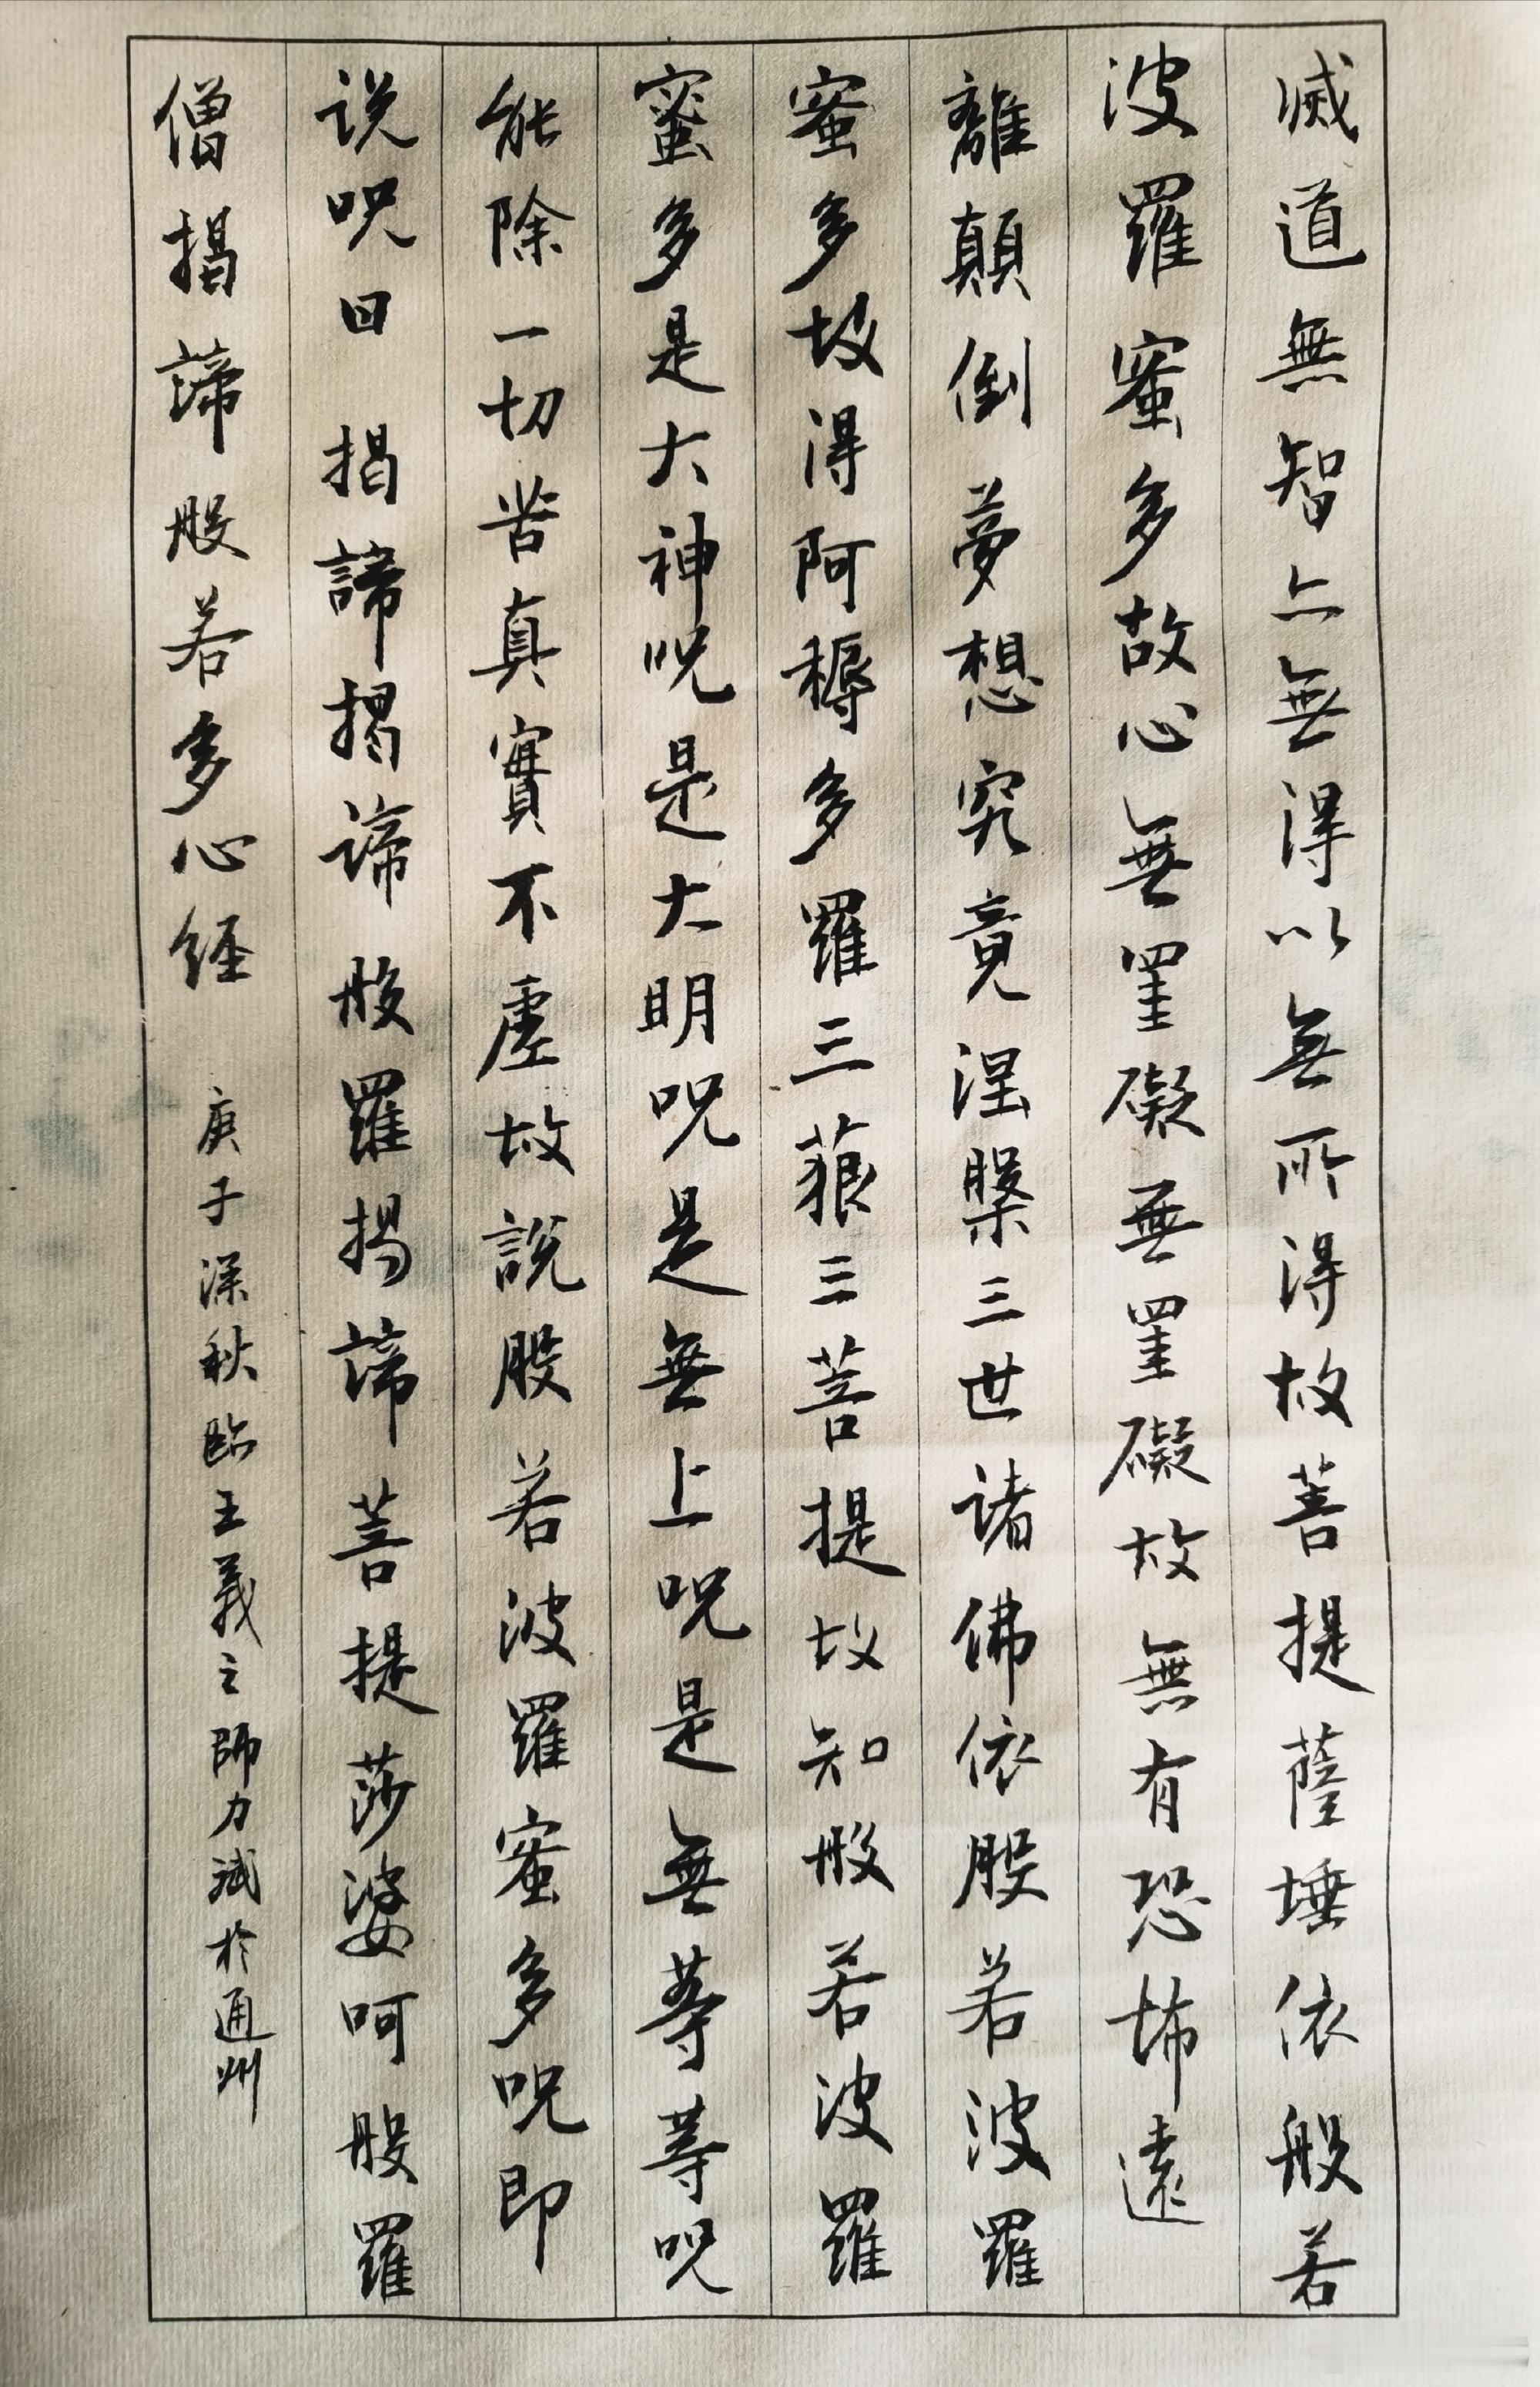 滅道無智亦無得以無所得故菩提薩埵依般若
波羅蜜多故心無罣礙無罣礙故無有恐怖遠
離顛倒夢想究竟涅槃三世諸佛依般若波羅
蜜多故得阿耨多羅三藐三菩提故知般若波羅
蜜多是大神咒是大明咒是無上咒是無等等咒
能除一切苦真實不虛故說般若波羅蜜多咒即
说咒曰 揭諦揭諦 般羅揭諦 菩提莎婆呵 般羅
僧揭諦 般若多心經 庚子深秋臨王羲之師力斌於通州